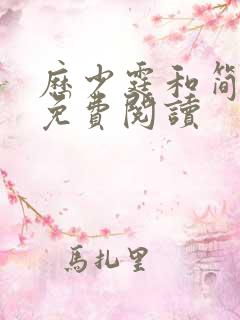 厤少霆和简
免費閱讀
馬扎里